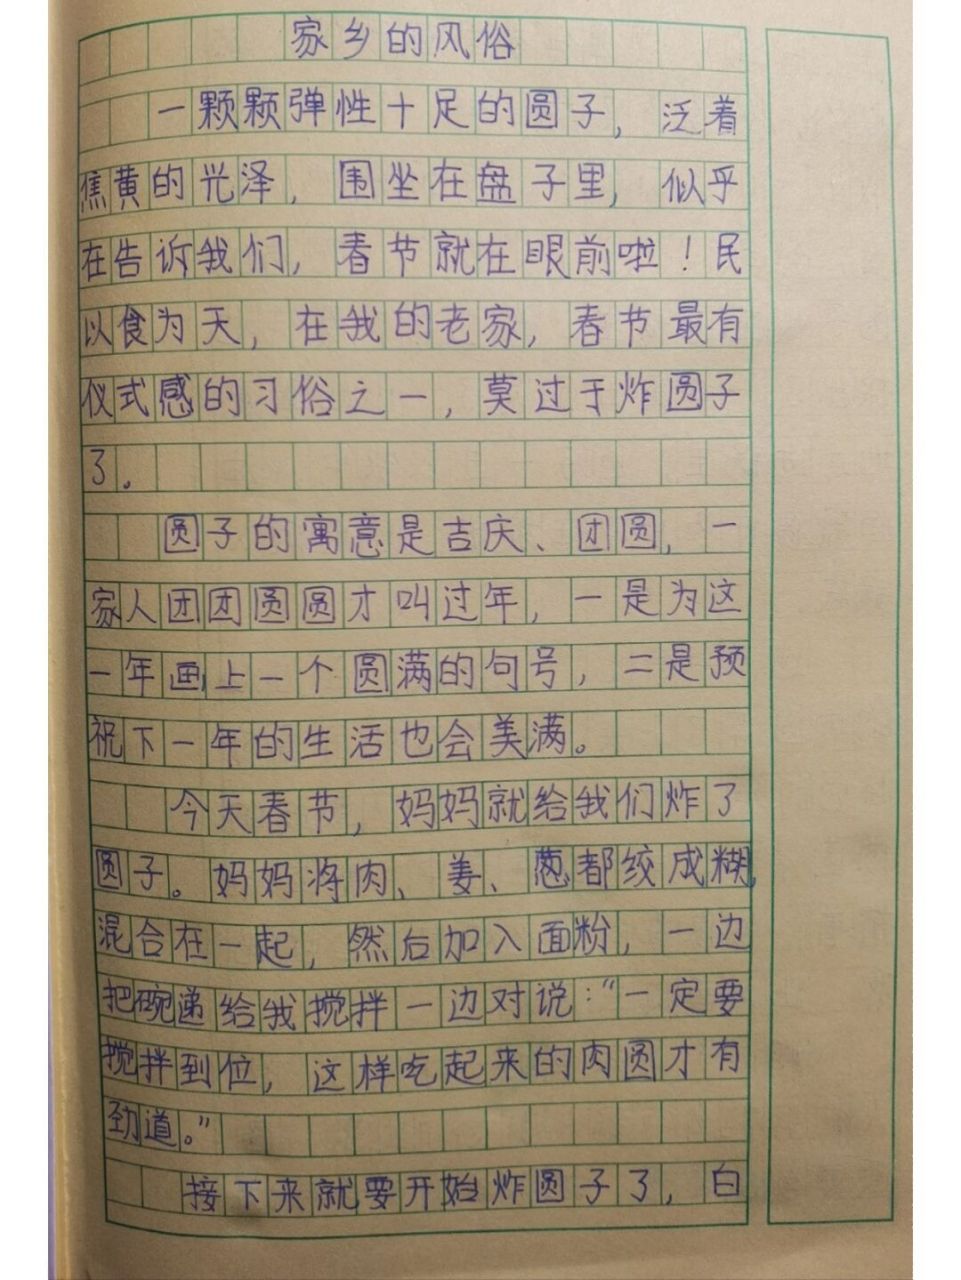 家乡的风俗
一颗颗弹性十足的圆子，泛着
焦黄的光泽，围坐在盘子里，似乎
在告诉我们，春节就在眼前啦！民
以食为天，在我的老家，春节最有
仪式感的习俗之一，莫过于炸圆子
了。
圆子的寓意是吉庆、团圆，一
家人团团圆圆才叫过年，一是为这
一年画上一个圆满的句号，二是预
祝下一年的生活也会美满。
今天春节，妈妈就给我们炸了
圆子。妈妈将肉、姜、葱都绞成糊，
混合在一起，然后加入面粉，一边
把碗递给我搅拌一边对说：“一定要
搅拌到位，这样吃起来的肉圆才有
劲道。”
接下来就要开始炸圆子了，白